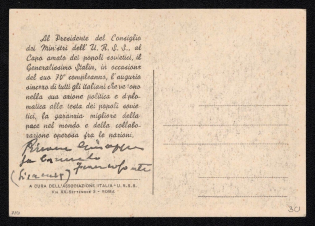 Al Presidente del Consiglio
dei Ministri dell'U.R.S.S., al
Capo amato dei popoli sovietici, il
Generalissimo Stalin, in occasione
del suo 70° compleanno, l'augurio
sincero di tutti gli italiani che vedono
nella sua azione politica e diplo-
matica alla testa dei popoli sovie-
tici, la garanzia migliore della
pace nel mondo e della collabo-
razione operosa fra le nazioni.
Giuseppe
Francofonte
(Siracusa)
A CURA DELL'ASSOCIAZIONE ITALIA-U.R.S.S.
Via XX Settembre 3 - ROMA